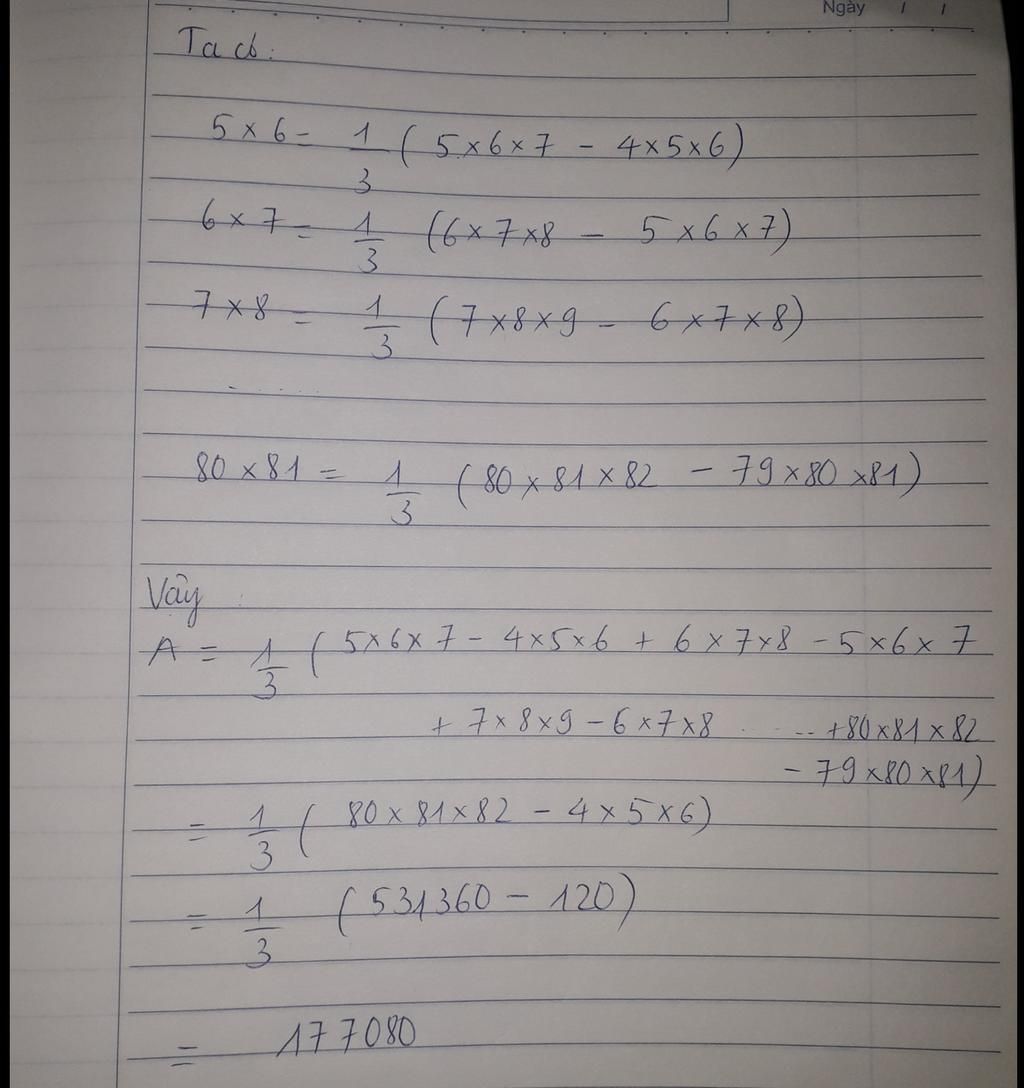 Ngày / /
Ta có:
5 × 6 = 1/3 ( 5 × 6 × 7 - 4 × 5 × 6 )
6 × 7 = 1/3 ( 6 × 7 × 8 - 5 × 6 × 7 )
7 × 8 = 1/3 ( 7 × 8 × 9 - 6 × 7 × 8 )
. . . .
80 × 81 = 1/3 ( 80 × 81 × 82 - 79 × 80 × 81 )
Vậy :
A = 1/3 ( 5 × 6 × 7 - 4 × 5 × 6 + 6 × 7 × 8 - 5 × 6 × 7
+ 7 × 8 × 9 - 6 × 7 × 8 ..... + 80 × 81 × 82
- 79 × 80 × 81 )
= 1/3 ( 80 × 81 × 82 - 4 × 5 × 6 )
= 1/3 ( 531360 - 120 )
= 177080